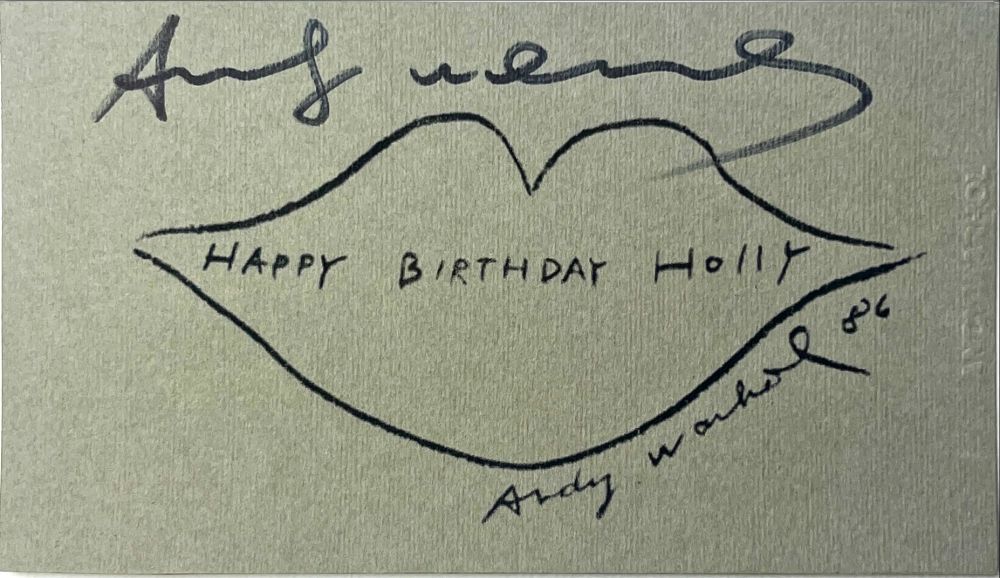 Andy Warhol
HAPPY BIRTHDAY HOllY
Andy Warhol 86